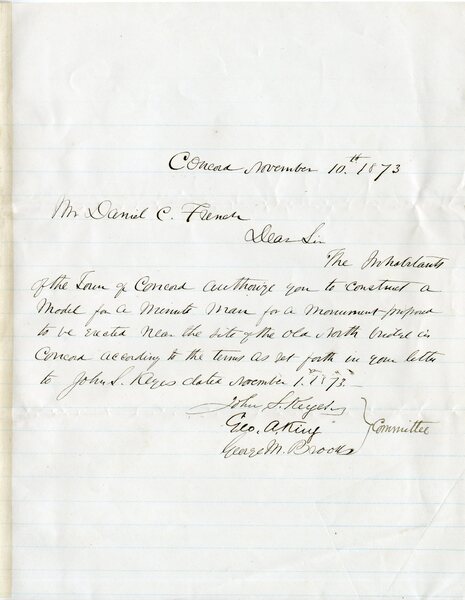 Concord November 10th 1873
Mr Daniel C. French
Dear Sir
The Inhabitants
of the Town of Concord authorize you to construct a
Model for a Minute Man for a Monument proposed
to be erected near the site of the old North bridge in
Concord according to the terms as set forth in your letter
to John S. Keyes dated November 1st 1873.
John S. Keyes
Geo. A. King
George M. Brooks
Committee